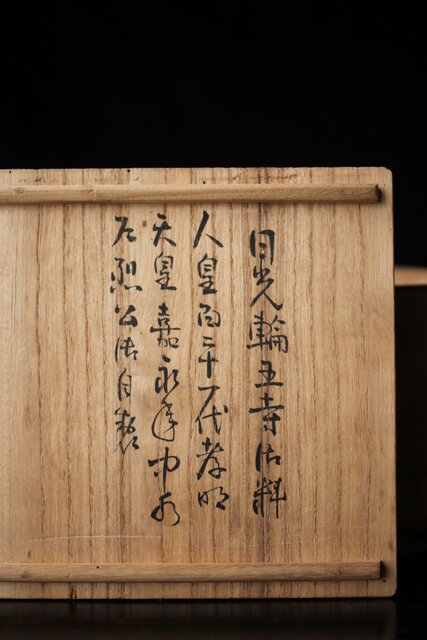 日光輪王寺御料
人皇百二十一代孝明
天皇嘉永年中水
戸烈公御自製